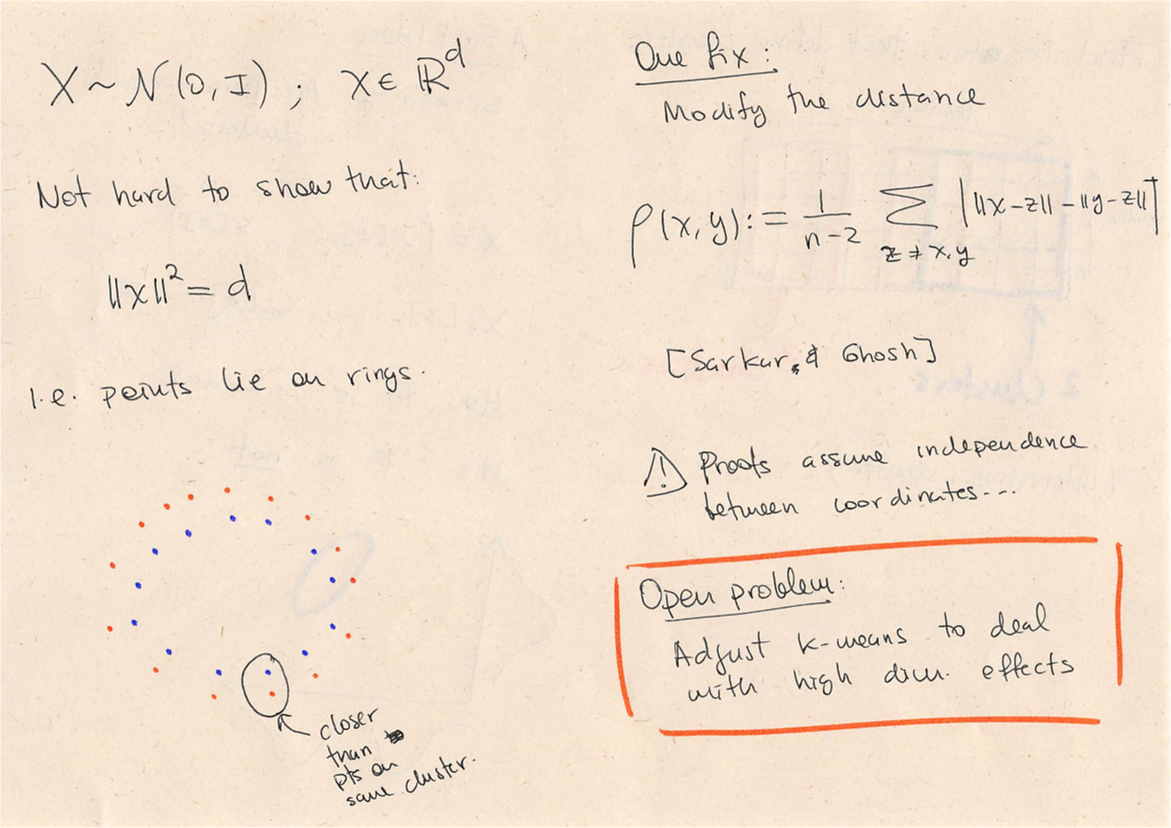 X ~ N(0, I) ; X ∈ ℝ^d
Not hard to show that:
||X||² = d
I.e. points lie on rings.
closer
than
pts on
same cluster.
One fix:
Modify the distance
ρ(x,y) := 1/(n-2) Σ_{z≠x,y} | ||x-z|| - ||y-z|| |
[Sarkar & Ghosh]
⚠ Proofs assume independence
between coordinates...
Open problem:
Adjust k-means to deal
with high dim. effects